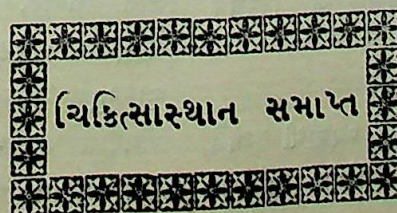 ચિકિત્સાસ્થાન સમાપ્ત